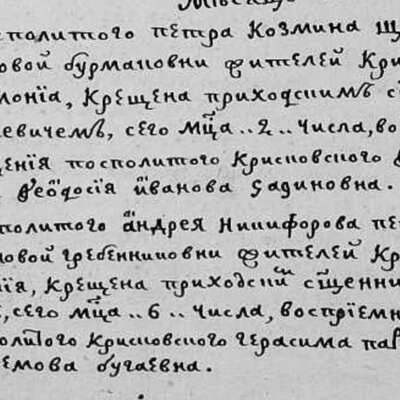 сполитого петра козмина щ
овой бурмановни жителей кри
лонїа, крещена приходскимъ с
евичемъ, сего мц̃а ..2.. числа, во
щенїя посполитого крисновского
ѳеѡдосїя йванова садиновна.
сполитого а҆ндрея никифорова пе
новой гребенниковни жителей кр
їя, крещена приходскимъ сщ҃енни
, сего мц̃а ..6.. числа, воспрїемн
олитого крисновского герасима па
емова бугаевна.